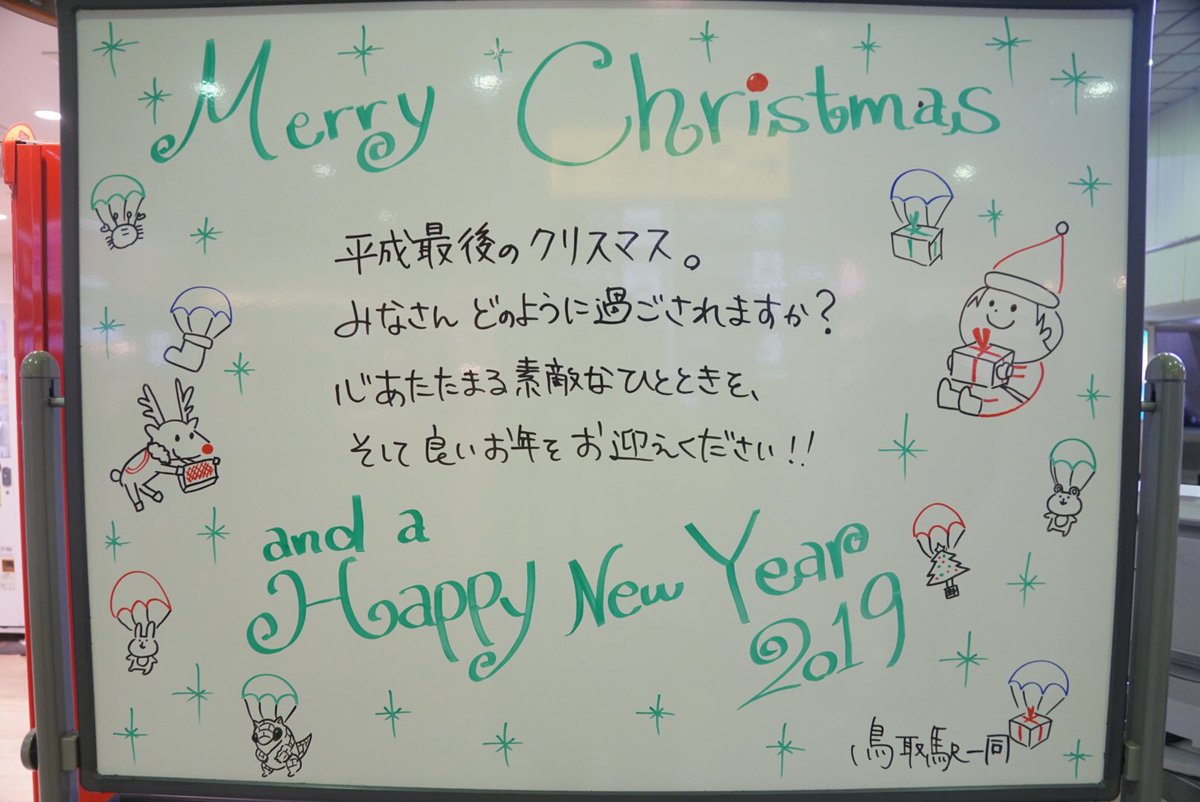 Merry Christmas
平成最後のクリスマス。
みなさんどのように過ごされますか?
心あたたまる素敵なひとときを、
そして良いお年をお迎えください!!
and a
Happy New Year
2019
鳥取駅一同